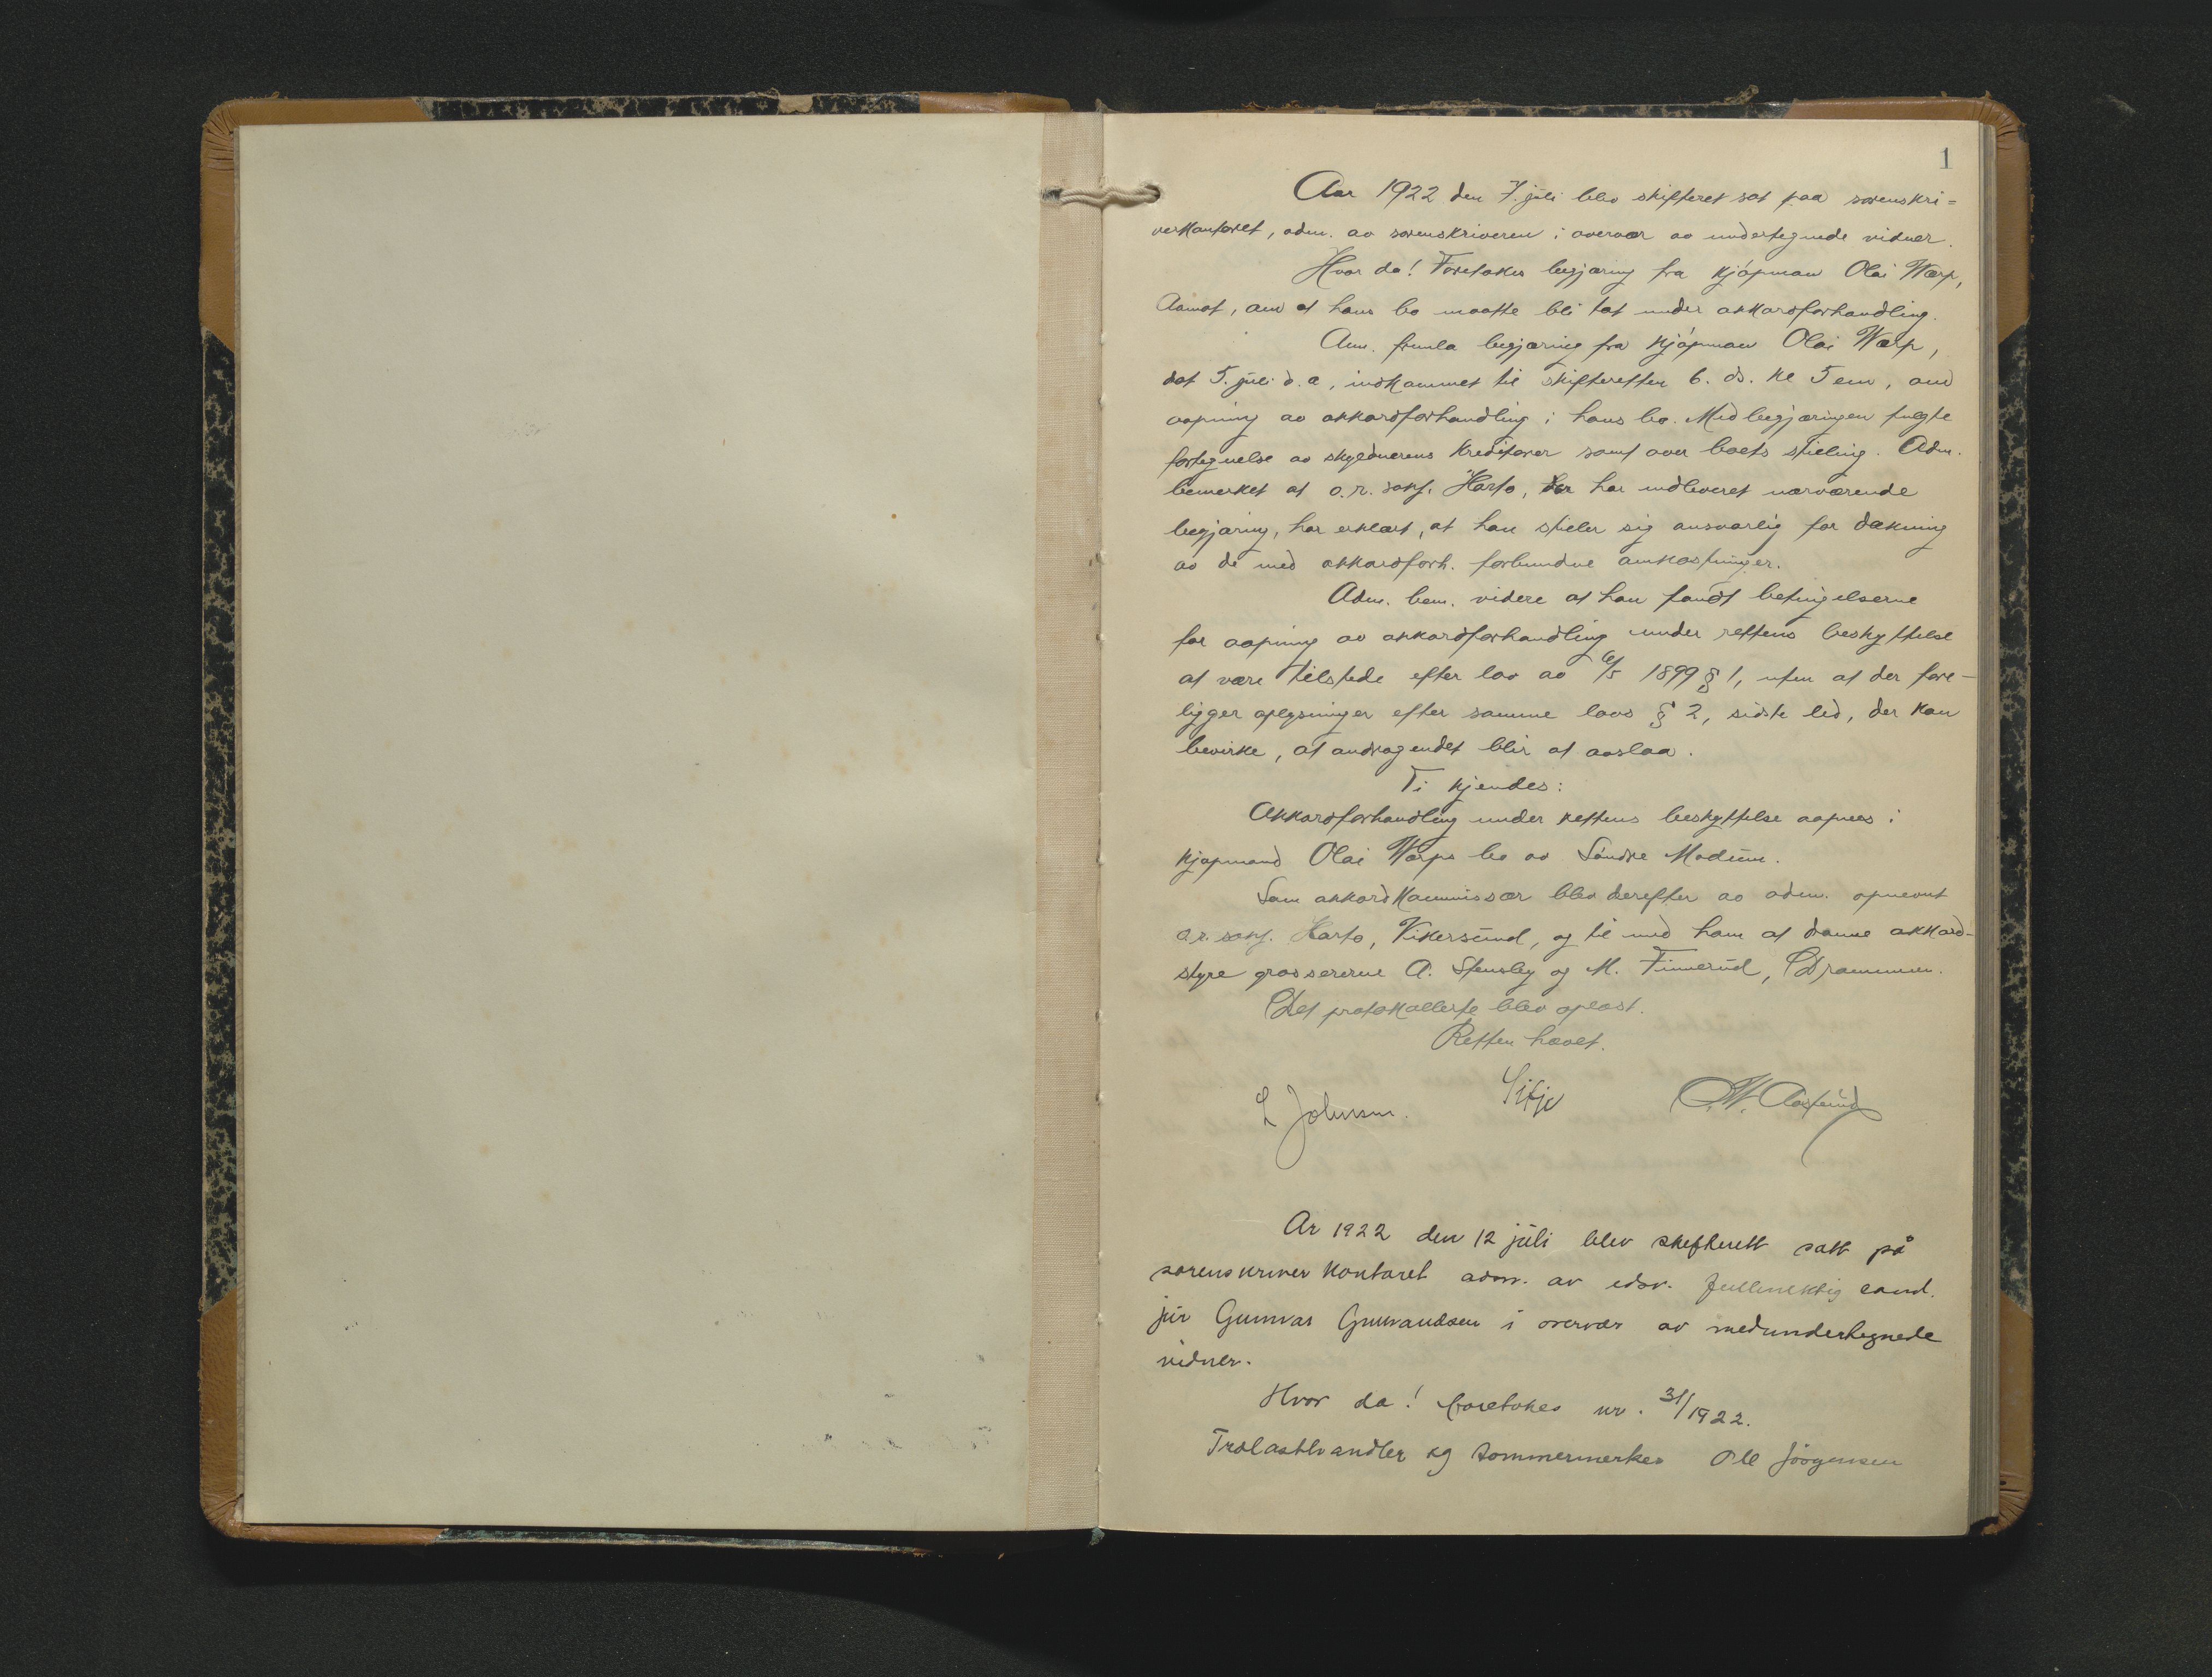 1
Aar 1922 den 7. juli blev skifteret sat paa sorenskri=
verkontoret, adm. av sorenskriveren i overvær av undertegnede vidner.
Hvor da! Foretokes begjæring fra kjøpman Olai Warp,
Aamot, om at hans bo maatte bli tat under akkordforhandling.
Adm. fremla begjæring fra kjøpman Olai Warp,
dat 5. juli d.a, indkommet til skifteretten 6. ds. kl 5 em, om
aapning av akkordforhandling i hans bo. Med begjæringen fulgte
fortegnelse av skyldnerens kreditorer samt over boets stilling. Adm.
bemerket at o.r. sakf. Harto, der har indleveret nærværende
begjæring, har erklært, at han stiller sig ansvarlig for dækning
av de med akkordforh. forbundne omkostninger.
Adm. bem. videre at han fandt betingelserne
for aapning av akkordforhandling under rettens beskyttelse
at være tilstede efter lov av 6/5 1899 § 1, uten at der fore-
ligger oplysninger efter samme lovs § 2, sidste led, der kan
bevirke, at andragendet blir at avslaa.
Ti kjendes:
Akkordforhandling under rettens beskyttelse aapnes i
kjøpmand Olai Warps bo av Søndre Modum.
Som akkordkommissær blev derefter av adm. opnevnt
o.r. sakf. Harto, Vikersund, og til med ham at danne akkord-
styre grossererne A. Stensby og M. Finnerud, Drammen.
Det protokollerte blev oplæst.
Retten hævet.
L Johnsen.
Ar 1922 den 12 juli blev skifterett satt på
sorenskriver kontoret adm. av edsv. fullmektig cand.
jur Gunvas Gunvaldsen i overvær av medundertegnede
vidner.
Hvor da! foretokes nr. 31/1922.
Trælasthandler og tømmermerker Ole Jörgensen